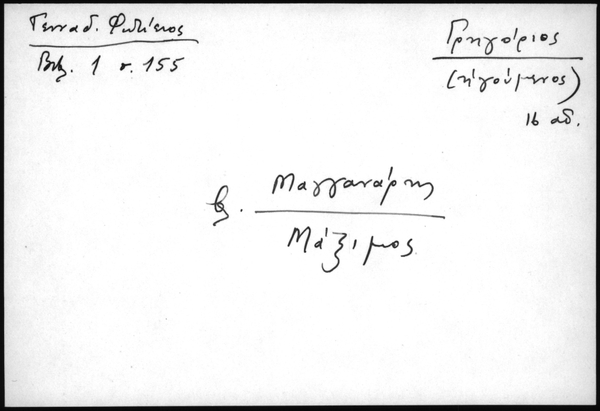 Γενναδ. Φωτίειος
Βιβ. 1 σ. 155
Γρηγόριος
(ηγούμενος)
16 αδ.
β. Μαγγανάρης
Μάξιμος